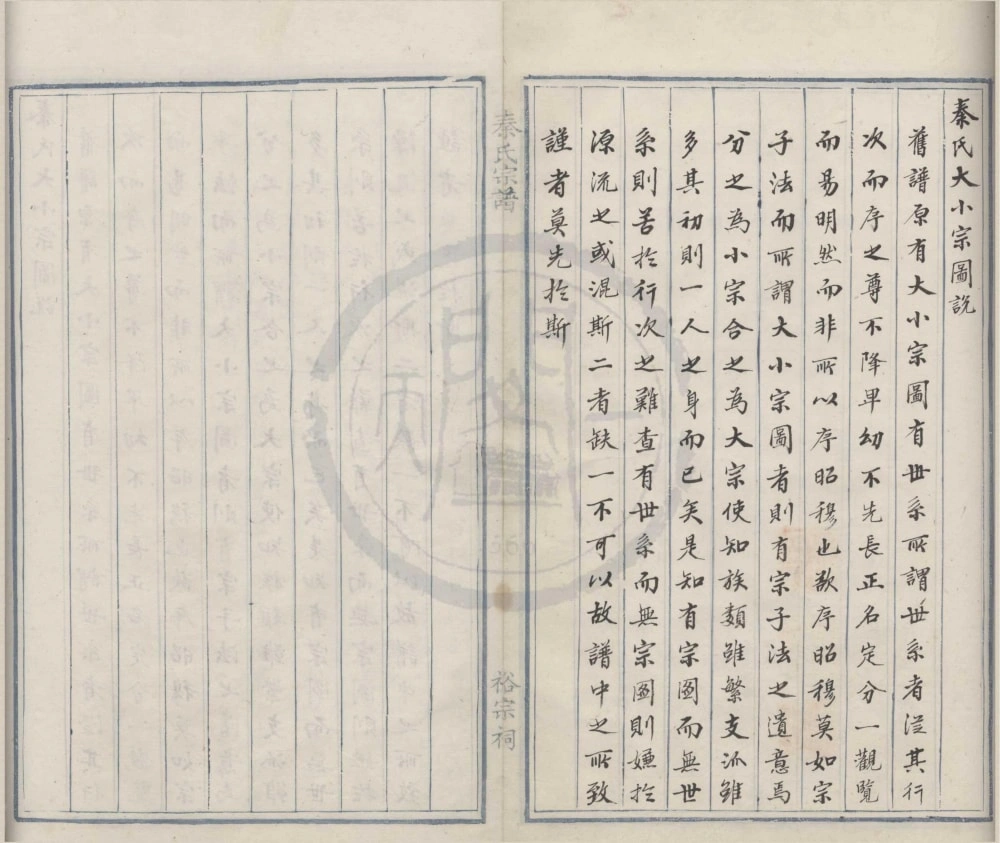 秦氏大小宗圖説
舊譜原有大小宗圖有世系所謂世系者從其行
次而序之尊不降卑幼不先長正名定分一觀覽
而易明然而非所以序昭穆也欲序昭穆莫如宗
子法而所謂大小宗圖者則有宗子法之遺意焉
分之為小宗合之為大宗使知族類雖繁支派雖
多其初則一人之身而已矣是知有宗圖而無世
系則苦於行次之難查有世系而無宗圖則嫌於
源流之或混斯二者缺一不可以故譜中之所致
謹者莫先於斯
秦氏宗譜
裕宗祠